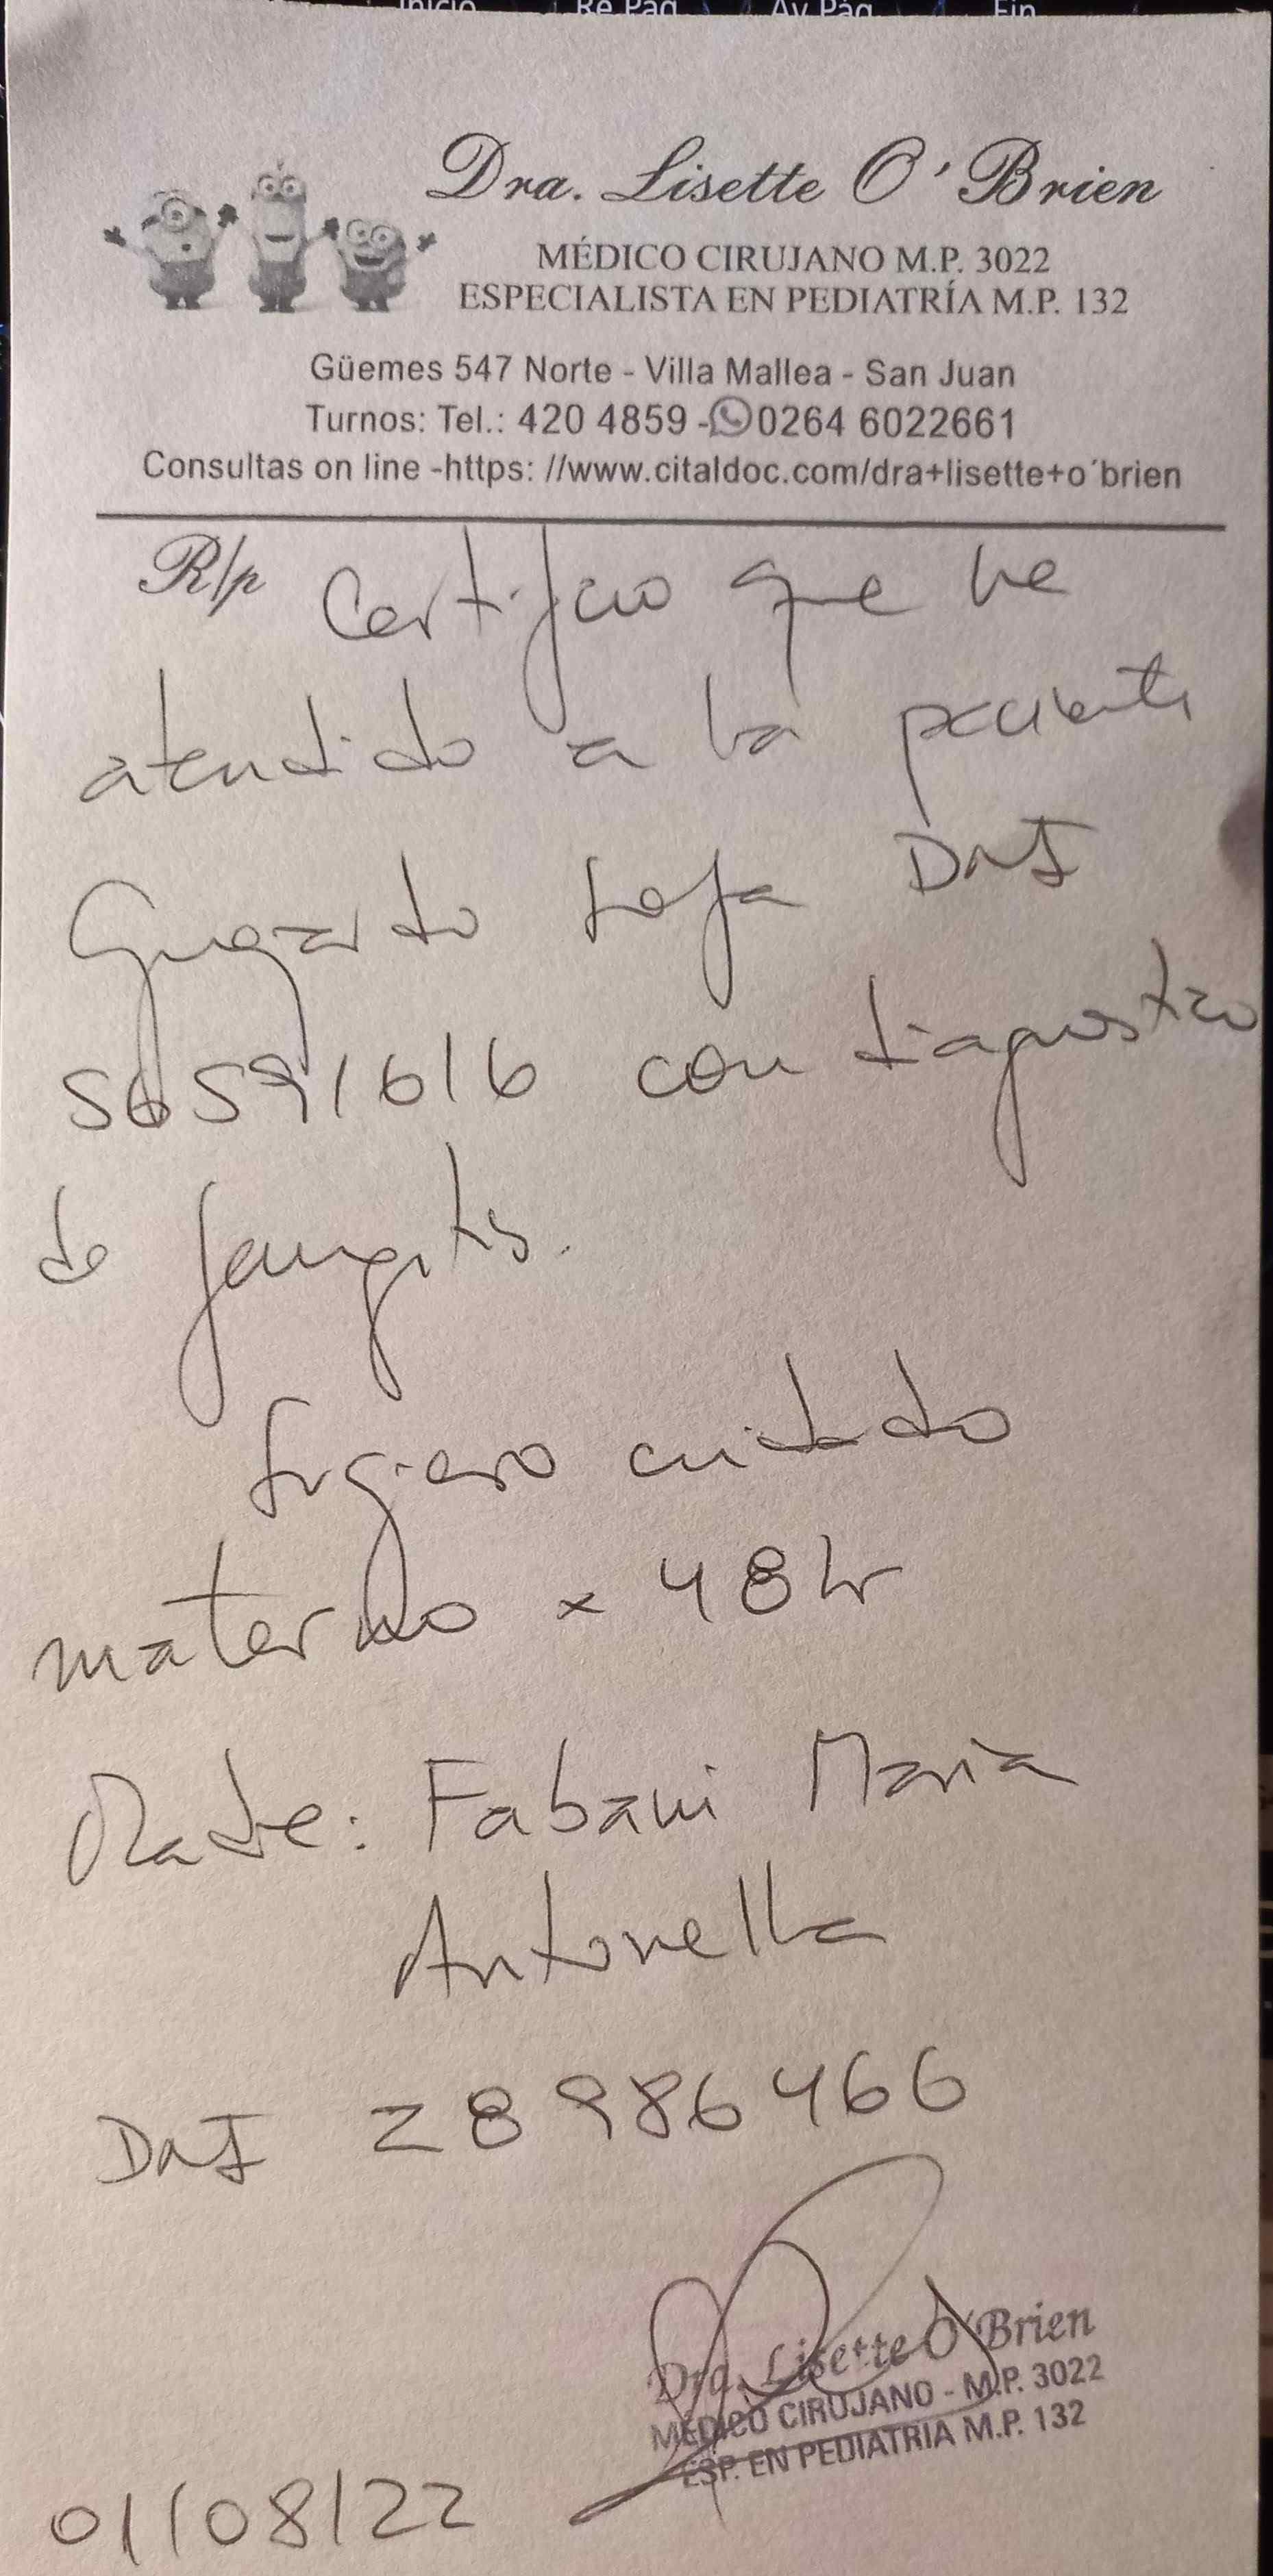 Inicio Re Pág Av Pág Fin
Dra. Lisette O'Brien
MÉDICO CIRUJANO M.P. 3022
ESPECIALISTA EN PEDIATRÍA M.P. 132
Güemes 547 Norte - Villa Mallea - San Juan
Turnos: Tel.: 420 4859 - 0264 6022661
Consultas on line -https: //www.citaldoc.com/dra+lisette+o´brien
R/p Certifico que he
atendido a la paciente
DNI
56591616 con diagnostico
de faringitis.
Sugiero cuidado
materno x 48 hr
Madre: Fabani Maria
Antonella
DNI 28986466
Dra. Lisette O'Brien
MÉDICO CIRUJANO - M.P. 3022
ESP. EN PEDIATRIA M.P. 132
01/08/22